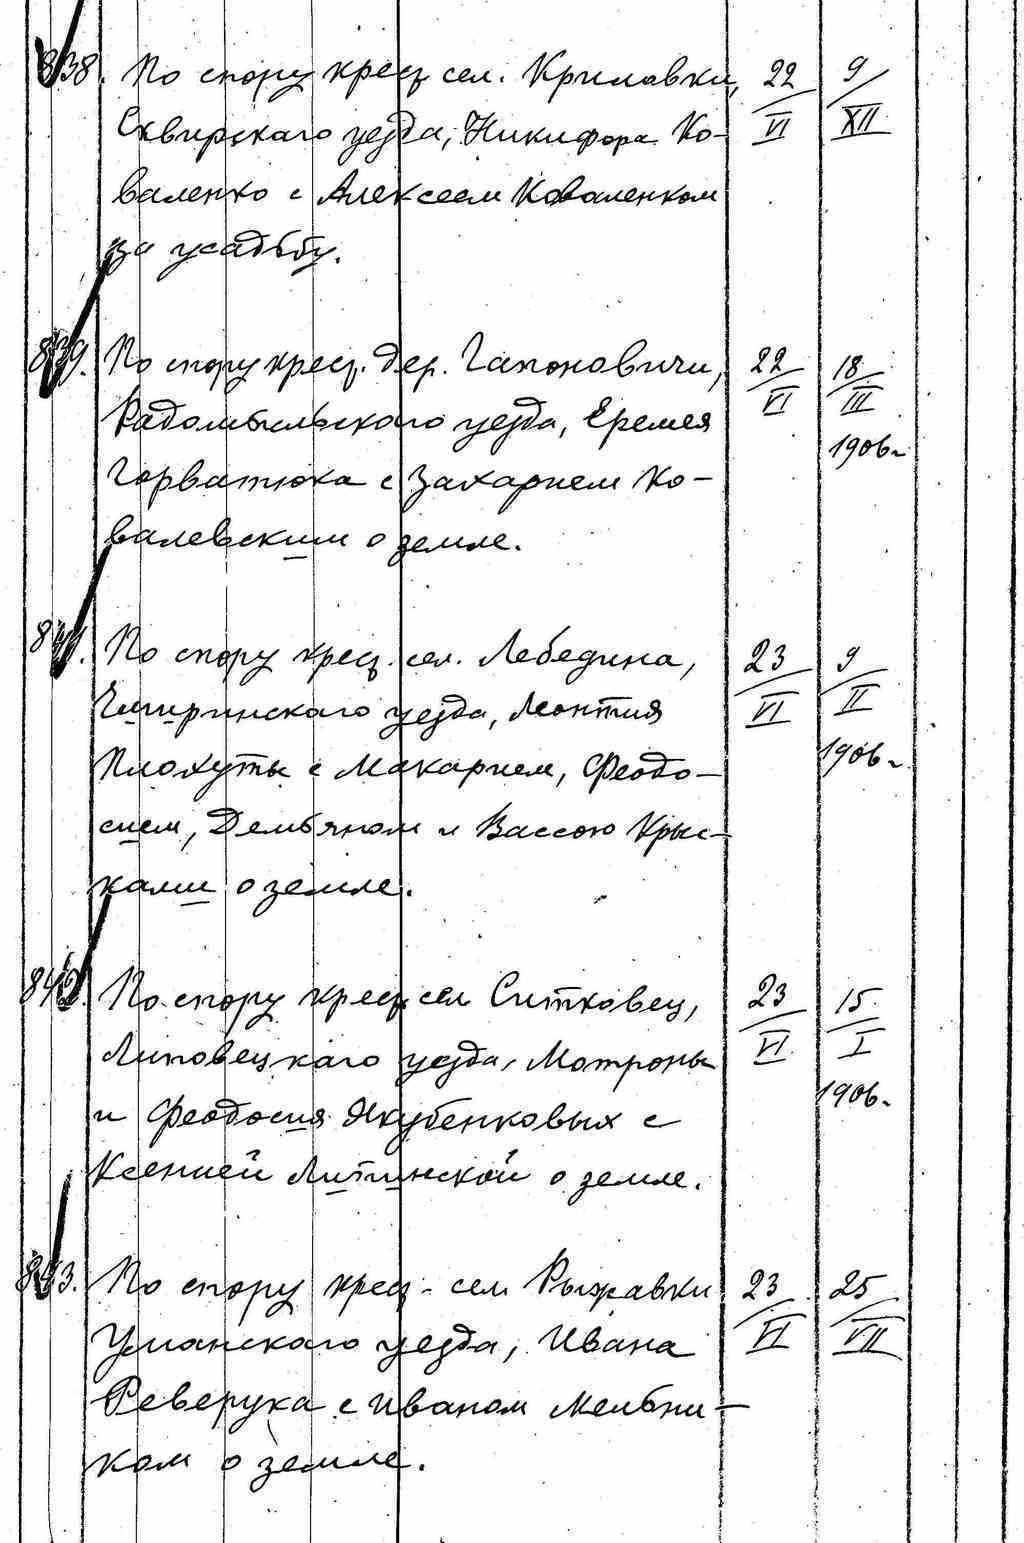 838. По спору крес. сел. Криловки, 22/VI 9/XII
Сквирскаго уезда, Никифора Ко-
валенко с Алексеем Коваленком
за усадьбу.
839. По спору крес. дер. Гапоновичи, 22/VI 18/III
Радомысльского уезда, Еремея 1906 г
Горватюка с Захарием Ко-
валевским о земле.
841. По спору крес. сел. Лебедина, 23/VI 9/II
Чигиринскаго уезда, Леонтия 1906 г.
Плохуты с Макарием, Феодо-
сием, Демьяном и Вассою Крыс-
ками о земле.
842. По спору крес. сел Ситковец, 23/VI 15/I
Липовецкаго уезда, Мотроны 1906 г.
и Феодосия Якубенковых с
Ксенией Литинской о земле.
843. По спору крес. сел Рыжавки 23/VI 25/VII
Уманскаго уезда, Ивана
Реверука с Иваном Мельни-
ком о земле.